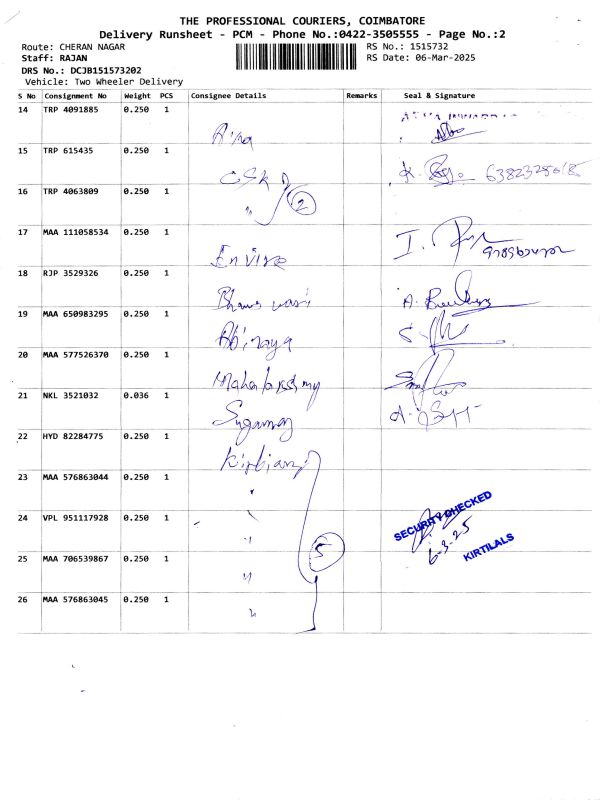 THE PROFESSIONAL COURIERS, COIMBATORE
Delivery Runsheet - PCM - Phone No.:0422-3505555 - Page No.:2
Route: CHERAN NAGAR RS No.: 1515732
Staff: RAJAN RS Date: 06-Mar-2025
DRS No.: DCJB151573202
Vehicle: Two Wheeler Delivery
S No Consignment No Weight PCS Consignee Details Remarks Seal & Signature
14 TRP 4091885 0.250 1
15 TRP 615435 0.250 1
16 TRP 4063809 0.250 1 2
17 MAA 111058534 0.250 1 Enviro
18 RJP 3529326 0.250 1
19 MAA 650983295 0.250 1 Abinaya
20 MAA 577526370 0.250 1
21 NKL 3521032 0.036 1
22 HYD 82284775 0.250 1
23 MAA 576863044 0.250 1
24 VPL 951117928 0.250 1 SECURITY CHECKED
6-3-25
KIRTILALS
25 MAA 706539867 0.250 1 5
26 MAA 576863045 0.250 1